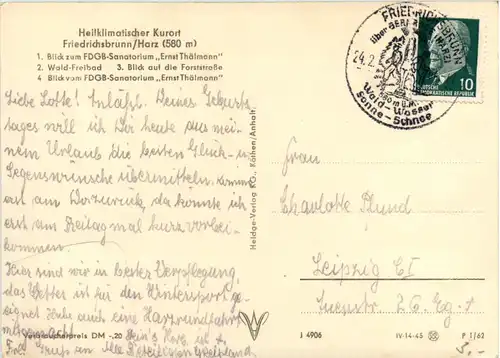 Heilklimatischer Kurort
Friedrichsbrunn/Harz (580 m)
1. Blick zum FDGB-Sanatorium „Ernst Thälmann"
2. Wald-Freibad 3. Blick auf die Forststraße
4 Blick vom FDGB-Sanatorium „Ernst Thälmann"
Liebe Lotte! Anläßl. Deines Geburts-
tages will ich Dir heute aus mei-
nem Urlaub die besten Glück- u.
Segenswünsche übermitteln.
erst am Freitag mal kurz vorbei-
kommen.
Hier sind wir in bester Verpflegung,
das Wetter ist für den Wintersport ge-
eignet. Heute auch eine Harzrundfahrt
mitgemacht.
Gruß an Alle
Verbraucherpreis DM -,20
Heldge-Verlag KG., Köthen/Anhalt.
FRIEDRICHSBRUNN
(HARZ)
über
24.2.
580 m ü.M.
Wald-Wasser
Sonne-Schnee
DEUTSCHE
DEMOKRATISCHE REPUBLIK
10
Frau
Charlotte Pfund
Leipzig C1
26
J 4906
IV-14-45
P 1/62